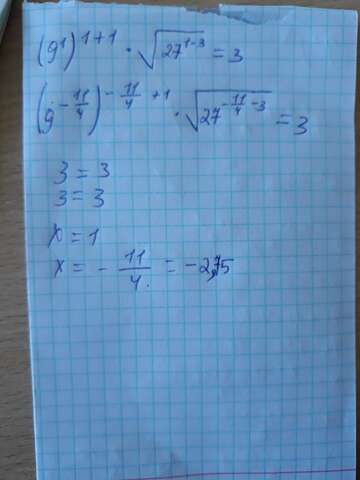 (9¹)¹⁺¹ · √27¹⁻³ = 3
(9^(-11/4))^(-11/4 + 1) · √27^(-11/4 - 3) = 3
3 = 3
3 = 3
x = 1
x = - 11/4. = -2,75